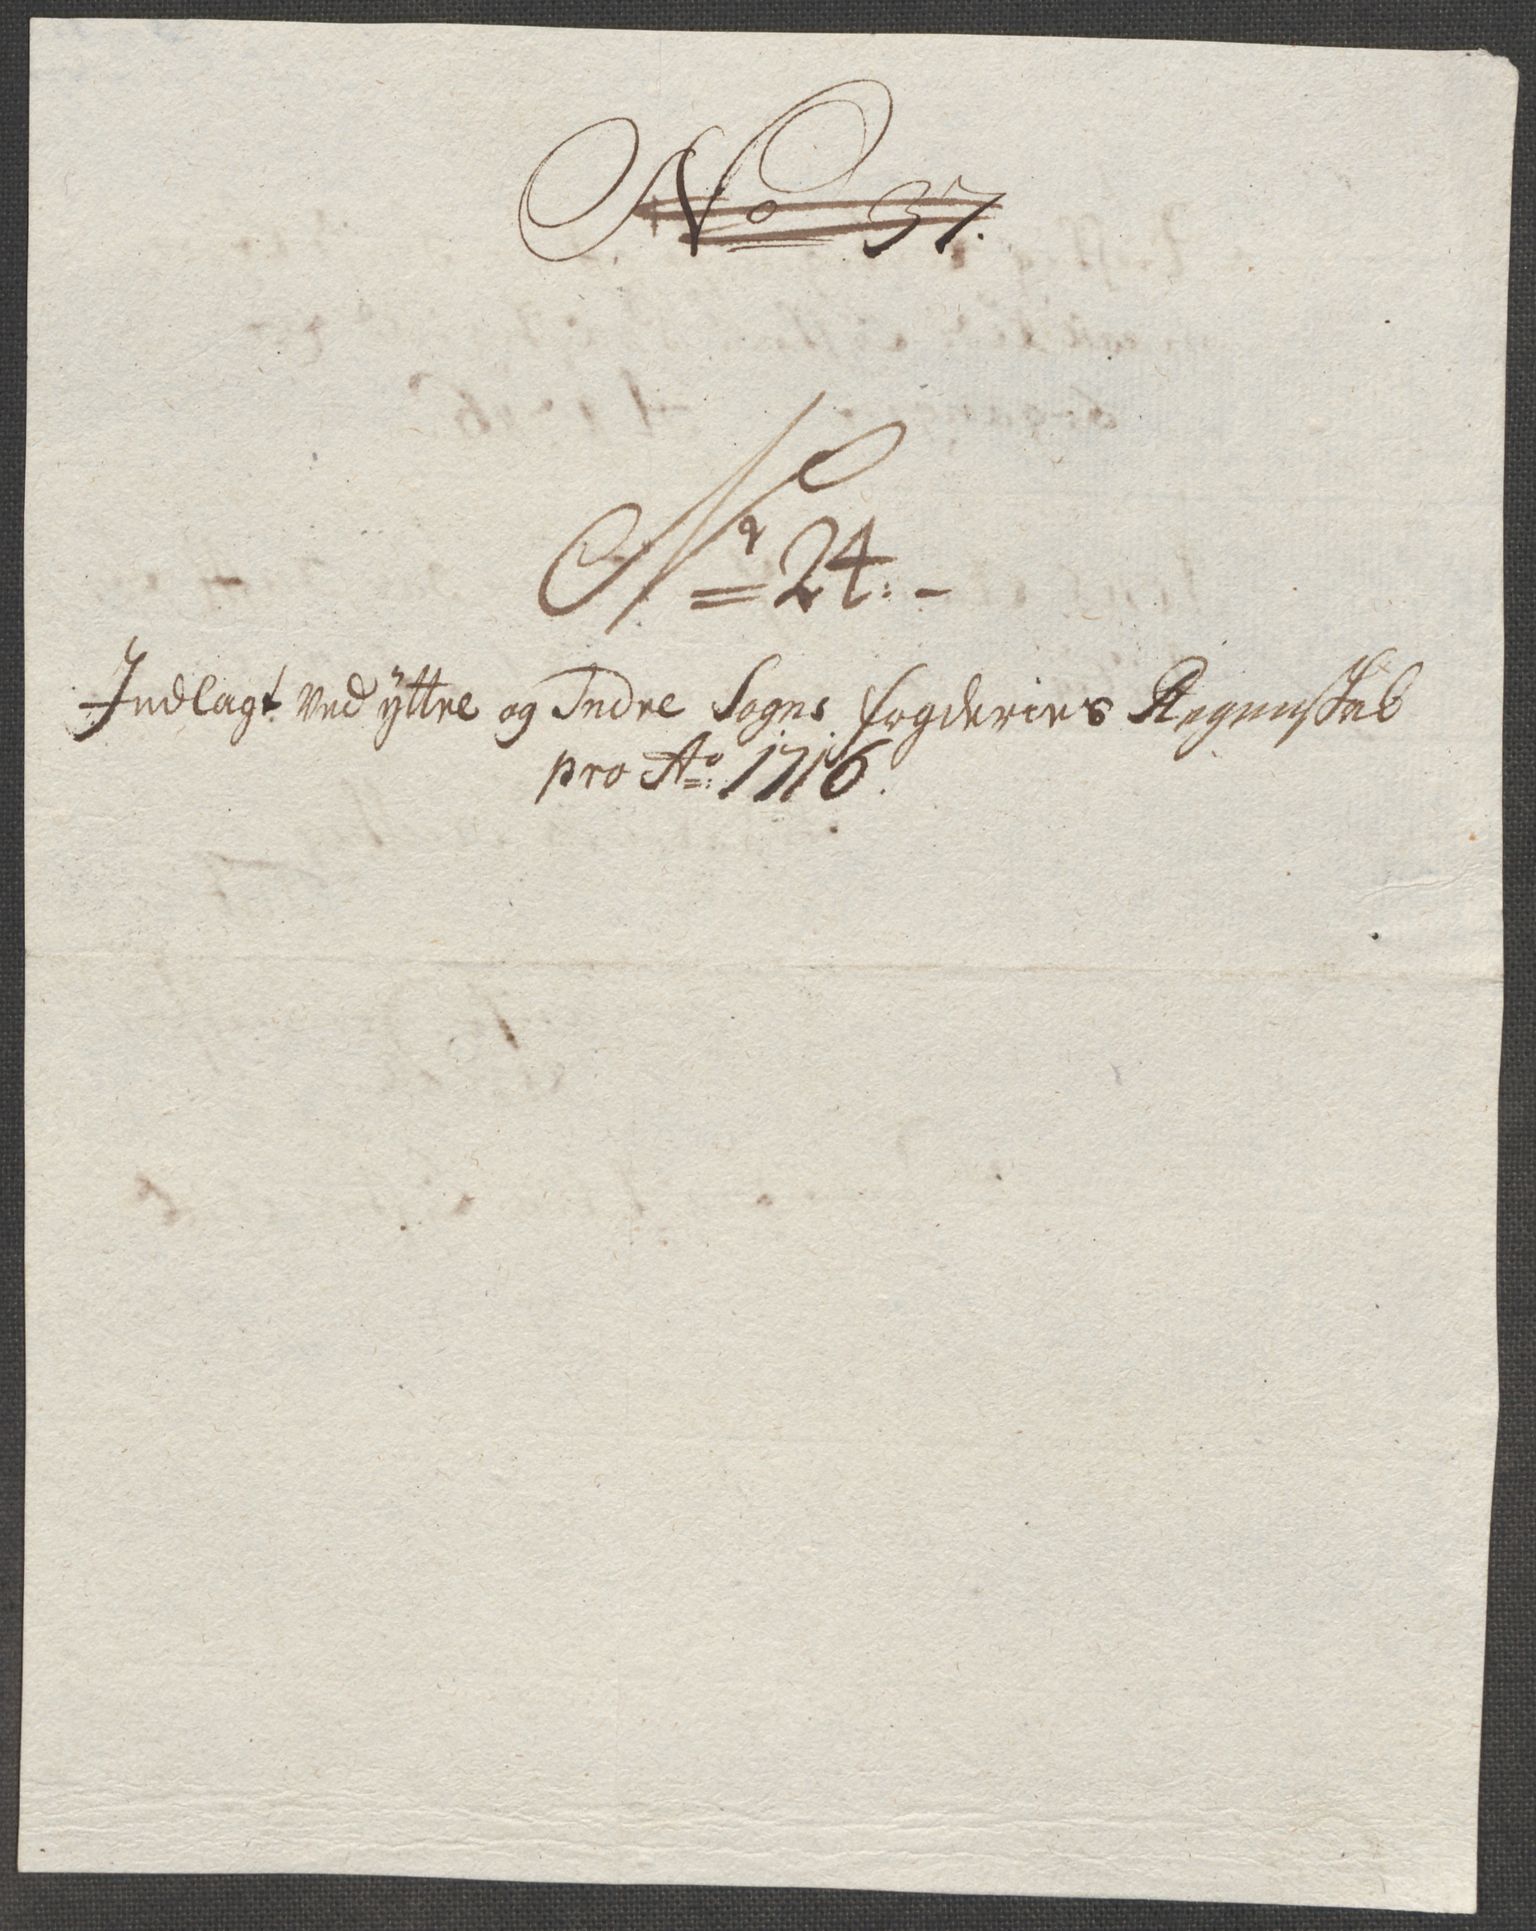 No 37.
Nr 24:-
Indlagt ved yttre og Indre Sogns fogderies Regenskab
pro Ao: 1716.